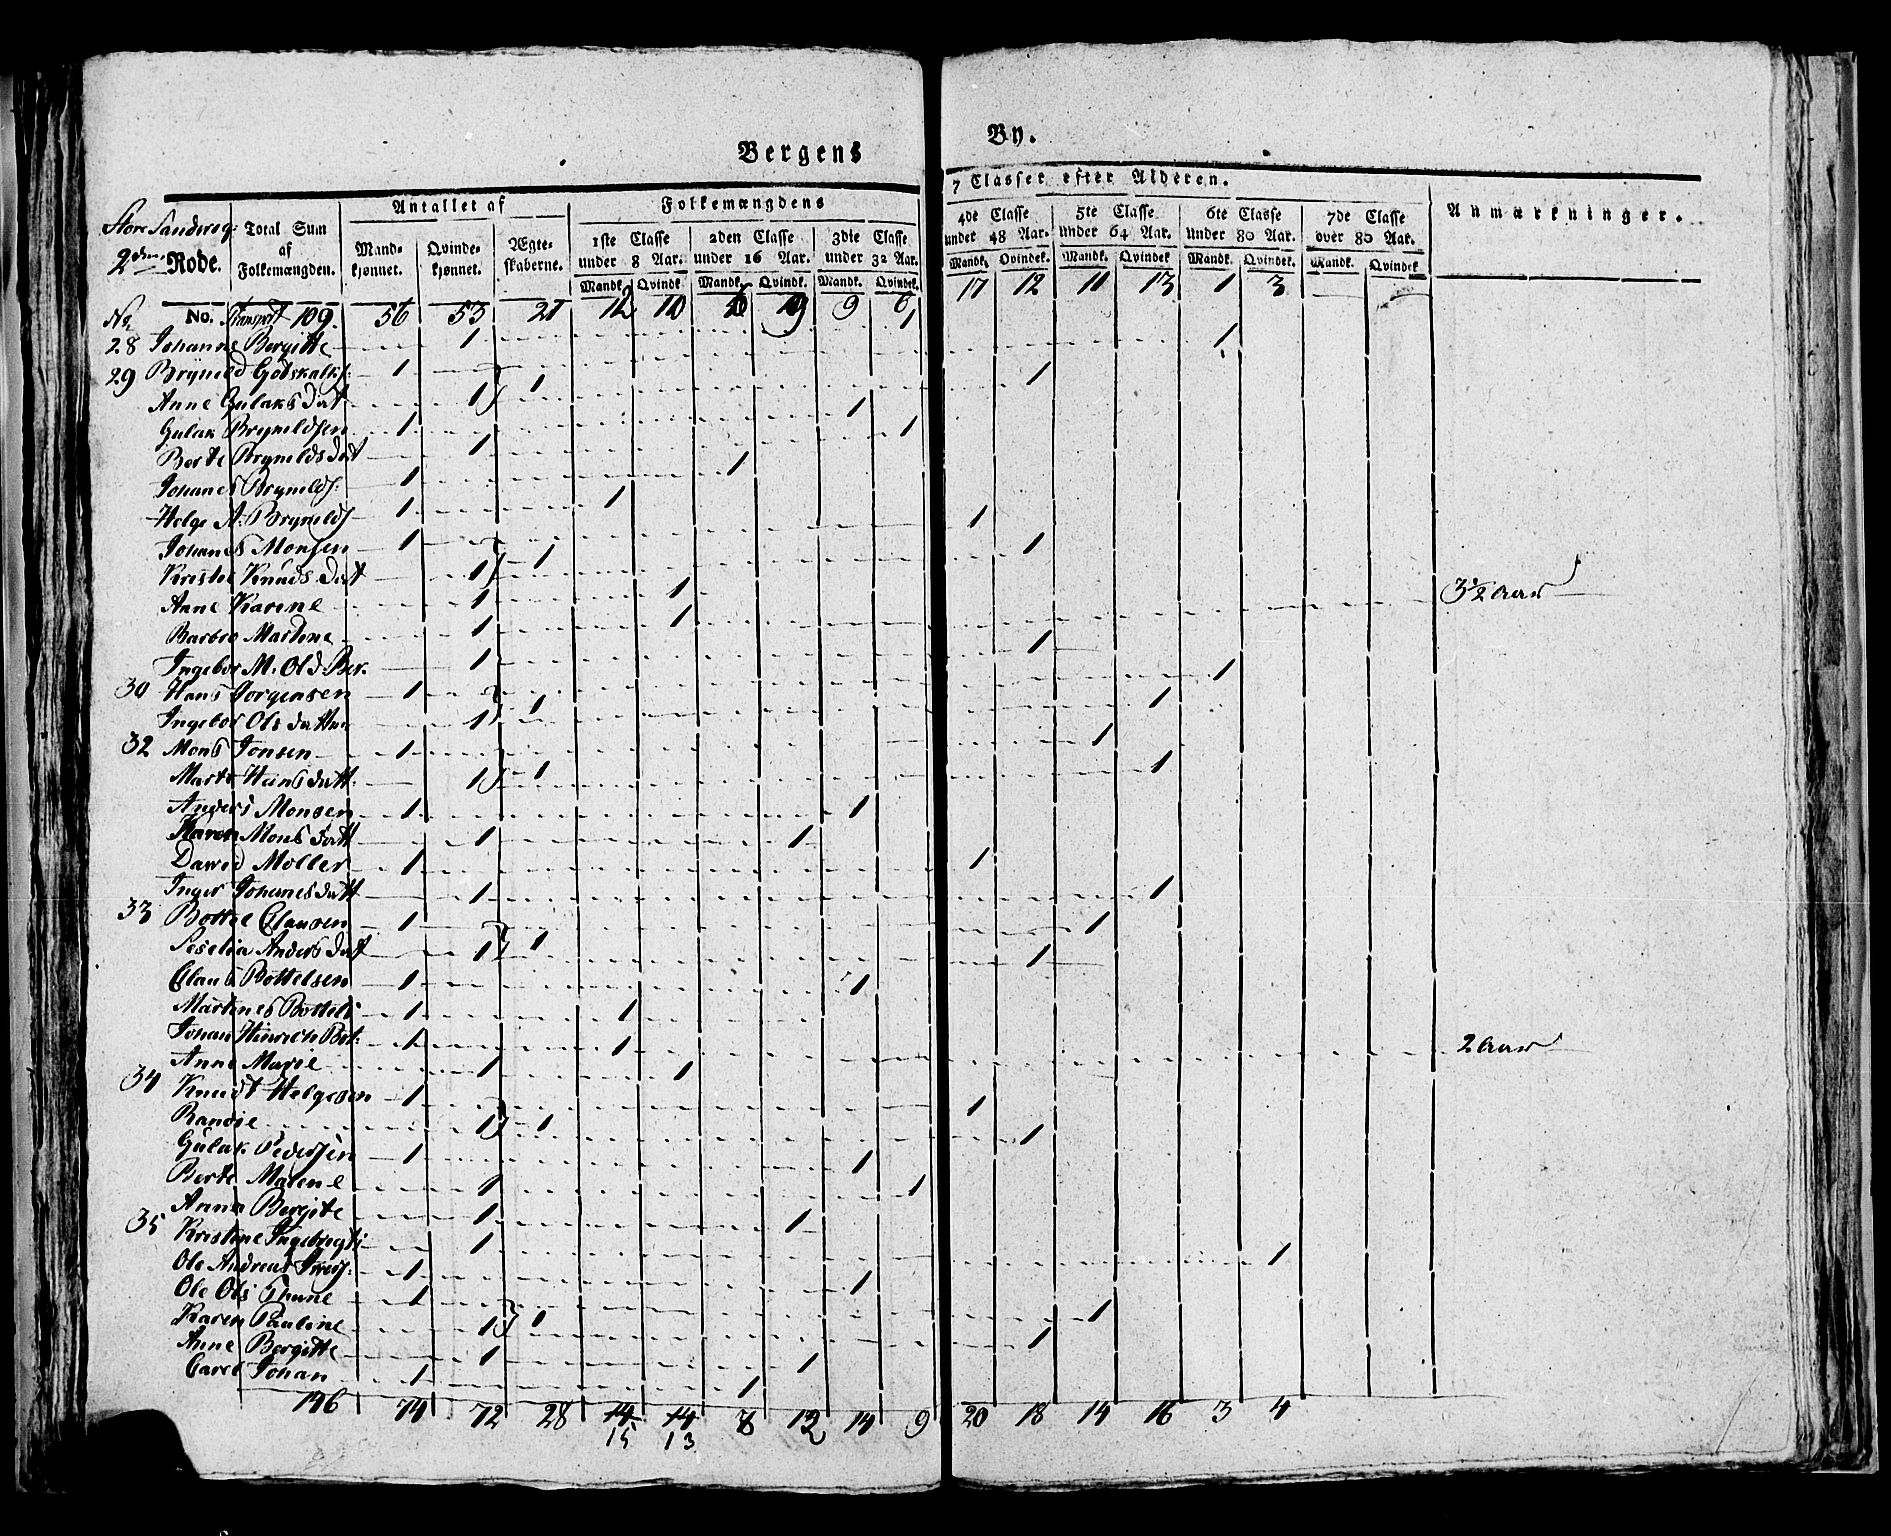 Bergens By.
Antallet af Folkemængdens 7 Classer efter Alderen.
Total Sum af Folkemængden. Mandkjønnet. Qvindekjønnet. Ægteskaberne. 1ste Classe under 8 Aar. 2den Classe under 16 Aar. 3die Classe under 32 Aar. 4de Classe under 48 Aar. 5te Classe under 64 Aar. 6te Classe under 80 Aar. 7de Classe over 80 Aar. Anmærkninger.
2den Rode.
Mandk. Qvindk. Mandk. Qvindk. Mandk. Qvindek. Mandk. Qvindek. Mandk. Qvindek Mandk. Qvindek. Mandk. Qvindek
No. No. Transport 109. 56 53 21 12 10 9 9 6 17 12 11 13 1 3
28 Johanne Bergitte 1 1
29 Bryneld Godskalks: 1 1
Anne Gulaks Datt 1 1 1
Gulak Bryneldsen 1 1
Berte Brynelds Datt 1
Johanes Brynelds: 1 1
Helge A: Brynelds 1 1
Johanes Monsen 1 1
Kristie Knuds Datt 1 1 1
Anne Karine 1 1 3 1/2 Aar
Barbro Martine 1 1
Ingebor M. Olsd. Ber. 1 1
30 Hans Jorgensen 1 1
Ingebor Ols datter 1 1 1
32 Mons Jonsen 1 1
Marte Hans datt: 1 1 1
Anders Monsen 1 1
Karen Mons datt 1 1
Dawed Moller 1 1
Inger Johanes datt 1 1
33 Bottel Clausen 1 1
Seselia Anders datt 1 1 1
Claus Bottelsen 1 1
Martines Bottels 1 1
Johan Hinrich Bot: 1 1 2 Aar
Anne Marie 1 1
34 Knudt Helgesen 1 1
Randie 1 1 1
Gulak Pedersen 1 1
Berte Malene 1 1
Anna Bergite 1 1
35 Kristine Ingebregts 1 1
Ole Andreas 1 1
Ole Ols Thune 1 1
Karen Pauline 1 1 1
Anne Bergitte 1 1
Carel Johan 1 1
146 74 72 28 14 14 8 12 14 9 20 18 14 16 3 4
15 13